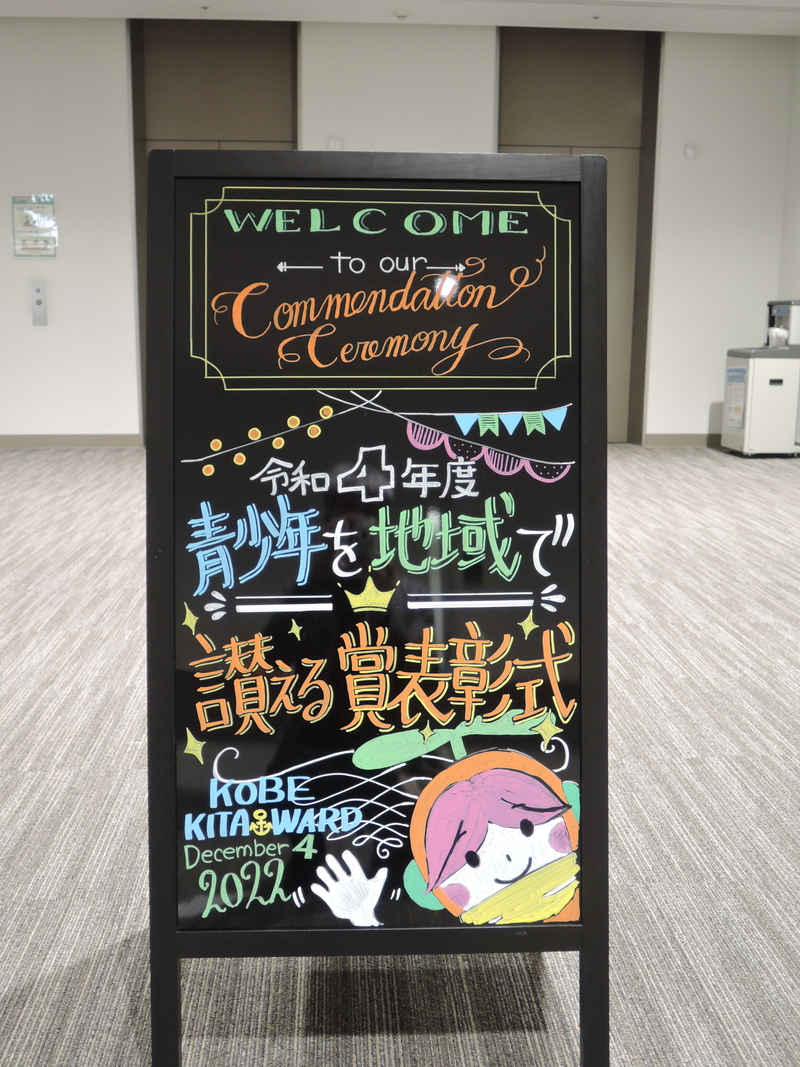 WELCOME
to our
Commendation
Ceremony
令和4年度
青少年を地域で
讃える賞表彰式
KOBE
KITA WARD
December 4
2022